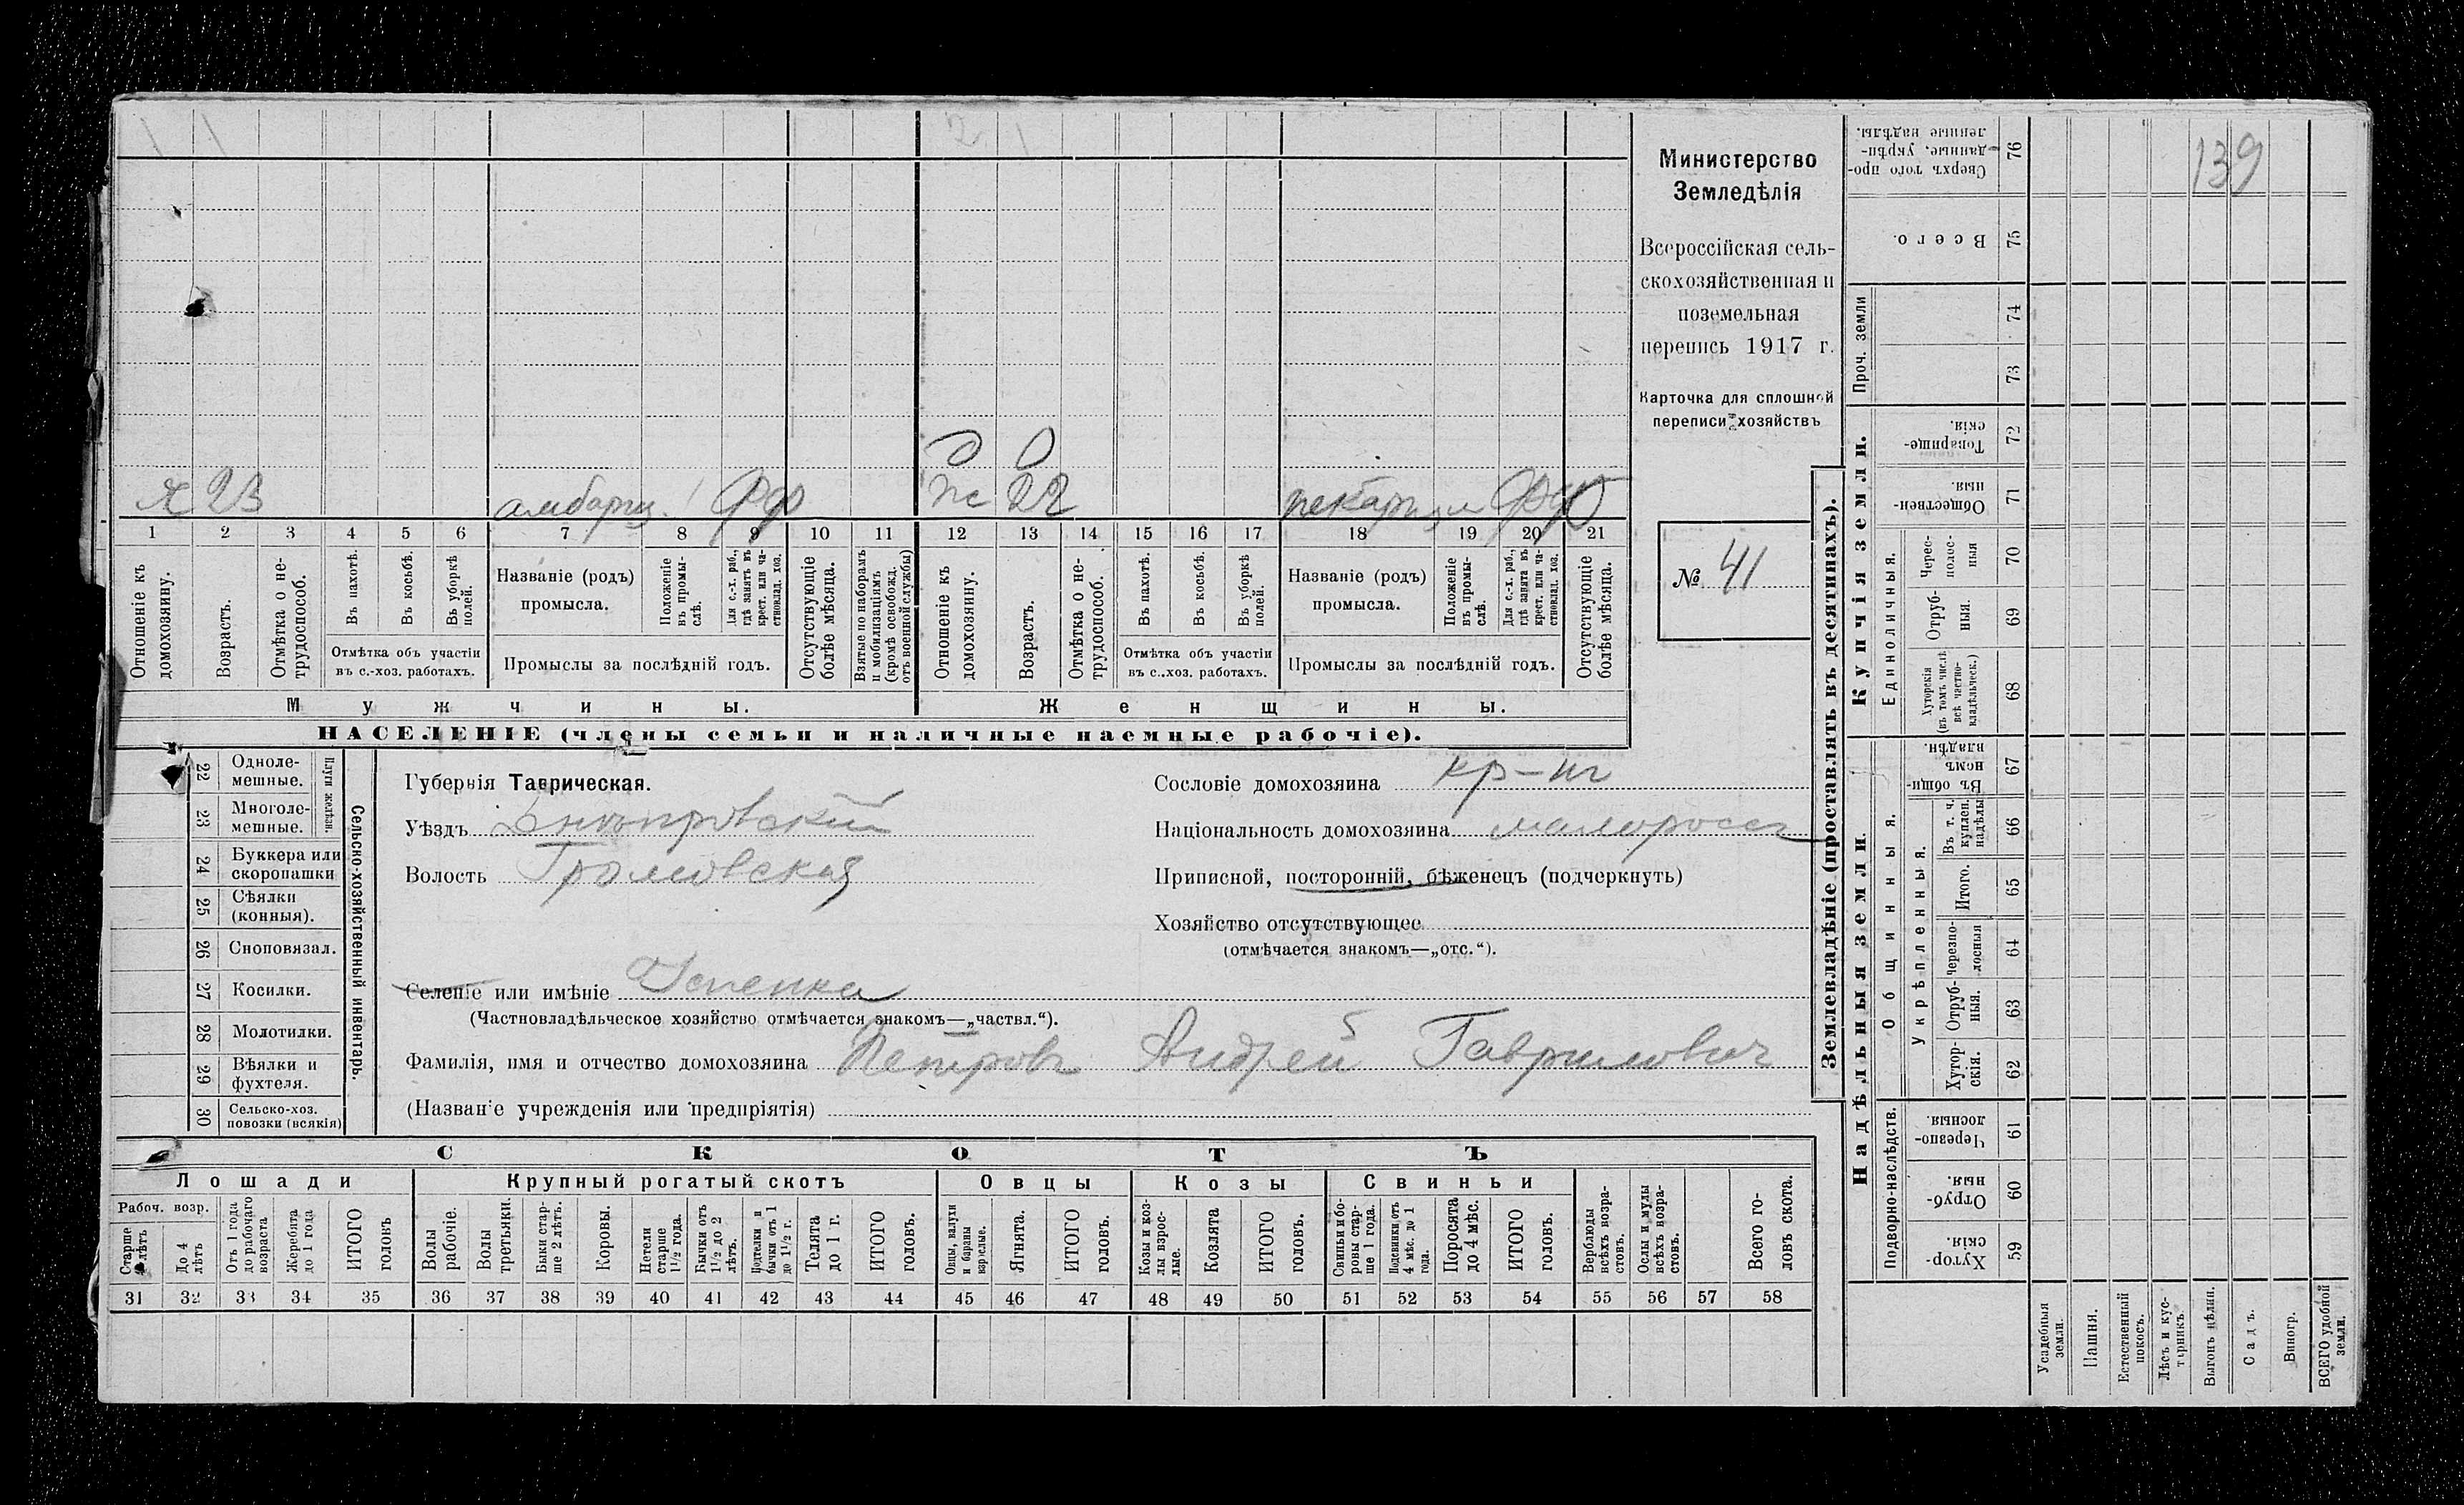 1 1 2 1
Министерство
Земледѣлія
Всероссійская сель-
скохозяйственная и
поземельная
перепись 1917 г.
Карточка для сплошной
переписи хозяйствъ
№ 41
139
х 23 амбарщ. 1
ж 22
1 2 3 4 5 6 7 8 9 10 11 12 13 14 15 16 17 18 19 20 21
Отношеніе къ домохозяину.
Возрастъ.
Отмѣтка о не-трудоспособ.
Въ пахотѣ.
Въ косьбѣ.
Въ уборкѣ полей.
Отмѣтка объ участіи
въ с.-хоз. работахъ.
Названіе (родъ)
промысла.
Положеніе въ промы-слѣ.
Для с.-х. раб., гдѣ занятъ въ крест. или ча-стновлад. хоз.
Промыслы за послѣдній годъ.
Отсутствующіе болѣе мѣсяца.
Взятые по наборамъ и мобилизаціямъ (кромѣ освобожд. отъ военной службы)
Отношеніе къ домохозяину.
Возрастъ.
Отмѣтка о не-трудоспособ.
Въ пахотѣ.
Въ косьбѣ.
Въ уборкѣ полей.
Отмѣтка объ участіи
въ с.-хоз. работахъ.
Названіе (родъ)
промысла.
Положеніе въ промы-слѣ.
Для с.-х. раб., гдѣ занята въ крест. или ча-стновлад. хоз.
Промыслы за послѣдній годъ.
Отсутствующіе болѣе мѣсяца.
Мужчины.
Женщины.
НАСЕЛЕНІЕ (члены семьи и наличные наемные рабочіе).
Сельско-хозяйственный инвентарь.
Плуги желѣзн.
22 Одноле-мешные.
23 Многоле-мешные.
24 Буккера или скоропашки
25 Сѣялки (конныя).
26 Сноповязал.
27 Косилки.
28 Молотилки.
29 Вѣялки и фухтеля.
30 Сельско-хоз. повозки (всякія)
Губернія Таврическая.
Уѣздъ Днѣпровскій
Волость Громовская
Селеніе или имѣніе Успенка
(Частновладѣльческое хозяйство отмѣчается знакомъ—„частвл.“).
Фамилія, имя и отчество домохозяина Петровъ Андрей Гаврилович
(Названіе учрежденія или предпріятія)
Сословіе домохозяина кр-нъ
Національность домохозяина малороссъ
Приписной, посторонній, бѣженецъ (подчеркнуть)
Хозяйство отсутствующее
(отмѣчается знакомъ—„отс.“).
СКОТЪ
Лошади
Крупный рогатый скотъ
Овцы
Козы
Свиньи
Рабоч. возр.
Старше 4 лѣтъ
До 4 лѣтъ
Отъ 1 года до рабочаго возраста
Жеребята до 1 года
ИТОГО головъ
Волы рабочіе.
Волы третьяки.
Быки стар-ше 2 лѣтъ.
Коровы.
Нетели старше 1½ года.
Бычки отъ 1½ до 2 лѣтъ.
Подтелки и бычки отъ 1 до 1½ г.
Телята до 1 г.
ИТОГО головъ.
Овцы, валухи и бараны взрослые.
Ягнята.
ИТОГО головъ.
Козы и коз-лы взрос-лые.
Козлята
ИТОГО головъ.
Свиньи и бо-ровы стар-ше 1 года.
Подсвинки отъ 4 мѣс. до 1 года.
Поросята до 4 мѣс.
ИТОГО головъ.
Верблюды всѣхъ возра-стовъ.
Ослы и мулы всѣхъ возра-стовъ.
Всего го-ловъ скота.
31 32 33 34 35 36 37 38 39 40 41 42 43 44 45 46 47 48 49 50 51 52 53 54 55 56 57 58
Землевладѣніе (проставлять въ десятинахъ).
Надѣльныя земли.
Купчія земли.
Проч. земли
Подворно-наслѣдств.
Общинныя.
Укрѣпленныя.
Единоличныя.
Сверхъ того про-данные, укрѣп-ленные надѣлы. 76
Всего. 75
74
73
Товарище-скія. 72
Обществен-ныя. 71
Черес-полос-ныя 70
Отруб-ныя. 69
Хуторскія (въ томъ числѣ всѣ частно-владѣльческ.) 68
Въ общи-номъ владѣн. 67
Въ т. ч. куплен. надѣлы 66
Итого. 65
Черезпо-лосныя 64
Отруб-ныя. 63
Хутор-скія. 62
Черезпо-лосныя 61
Отруб-ныя. 60
Хутор-скія. 59
Усадебныя земли.
Пашня.
Естественный покосъ.
Лѣсъ и кус-тарникъ.
Выгонъ цѣлин.
Садъ.
Виногр.
ВСЕГО удобной земли.